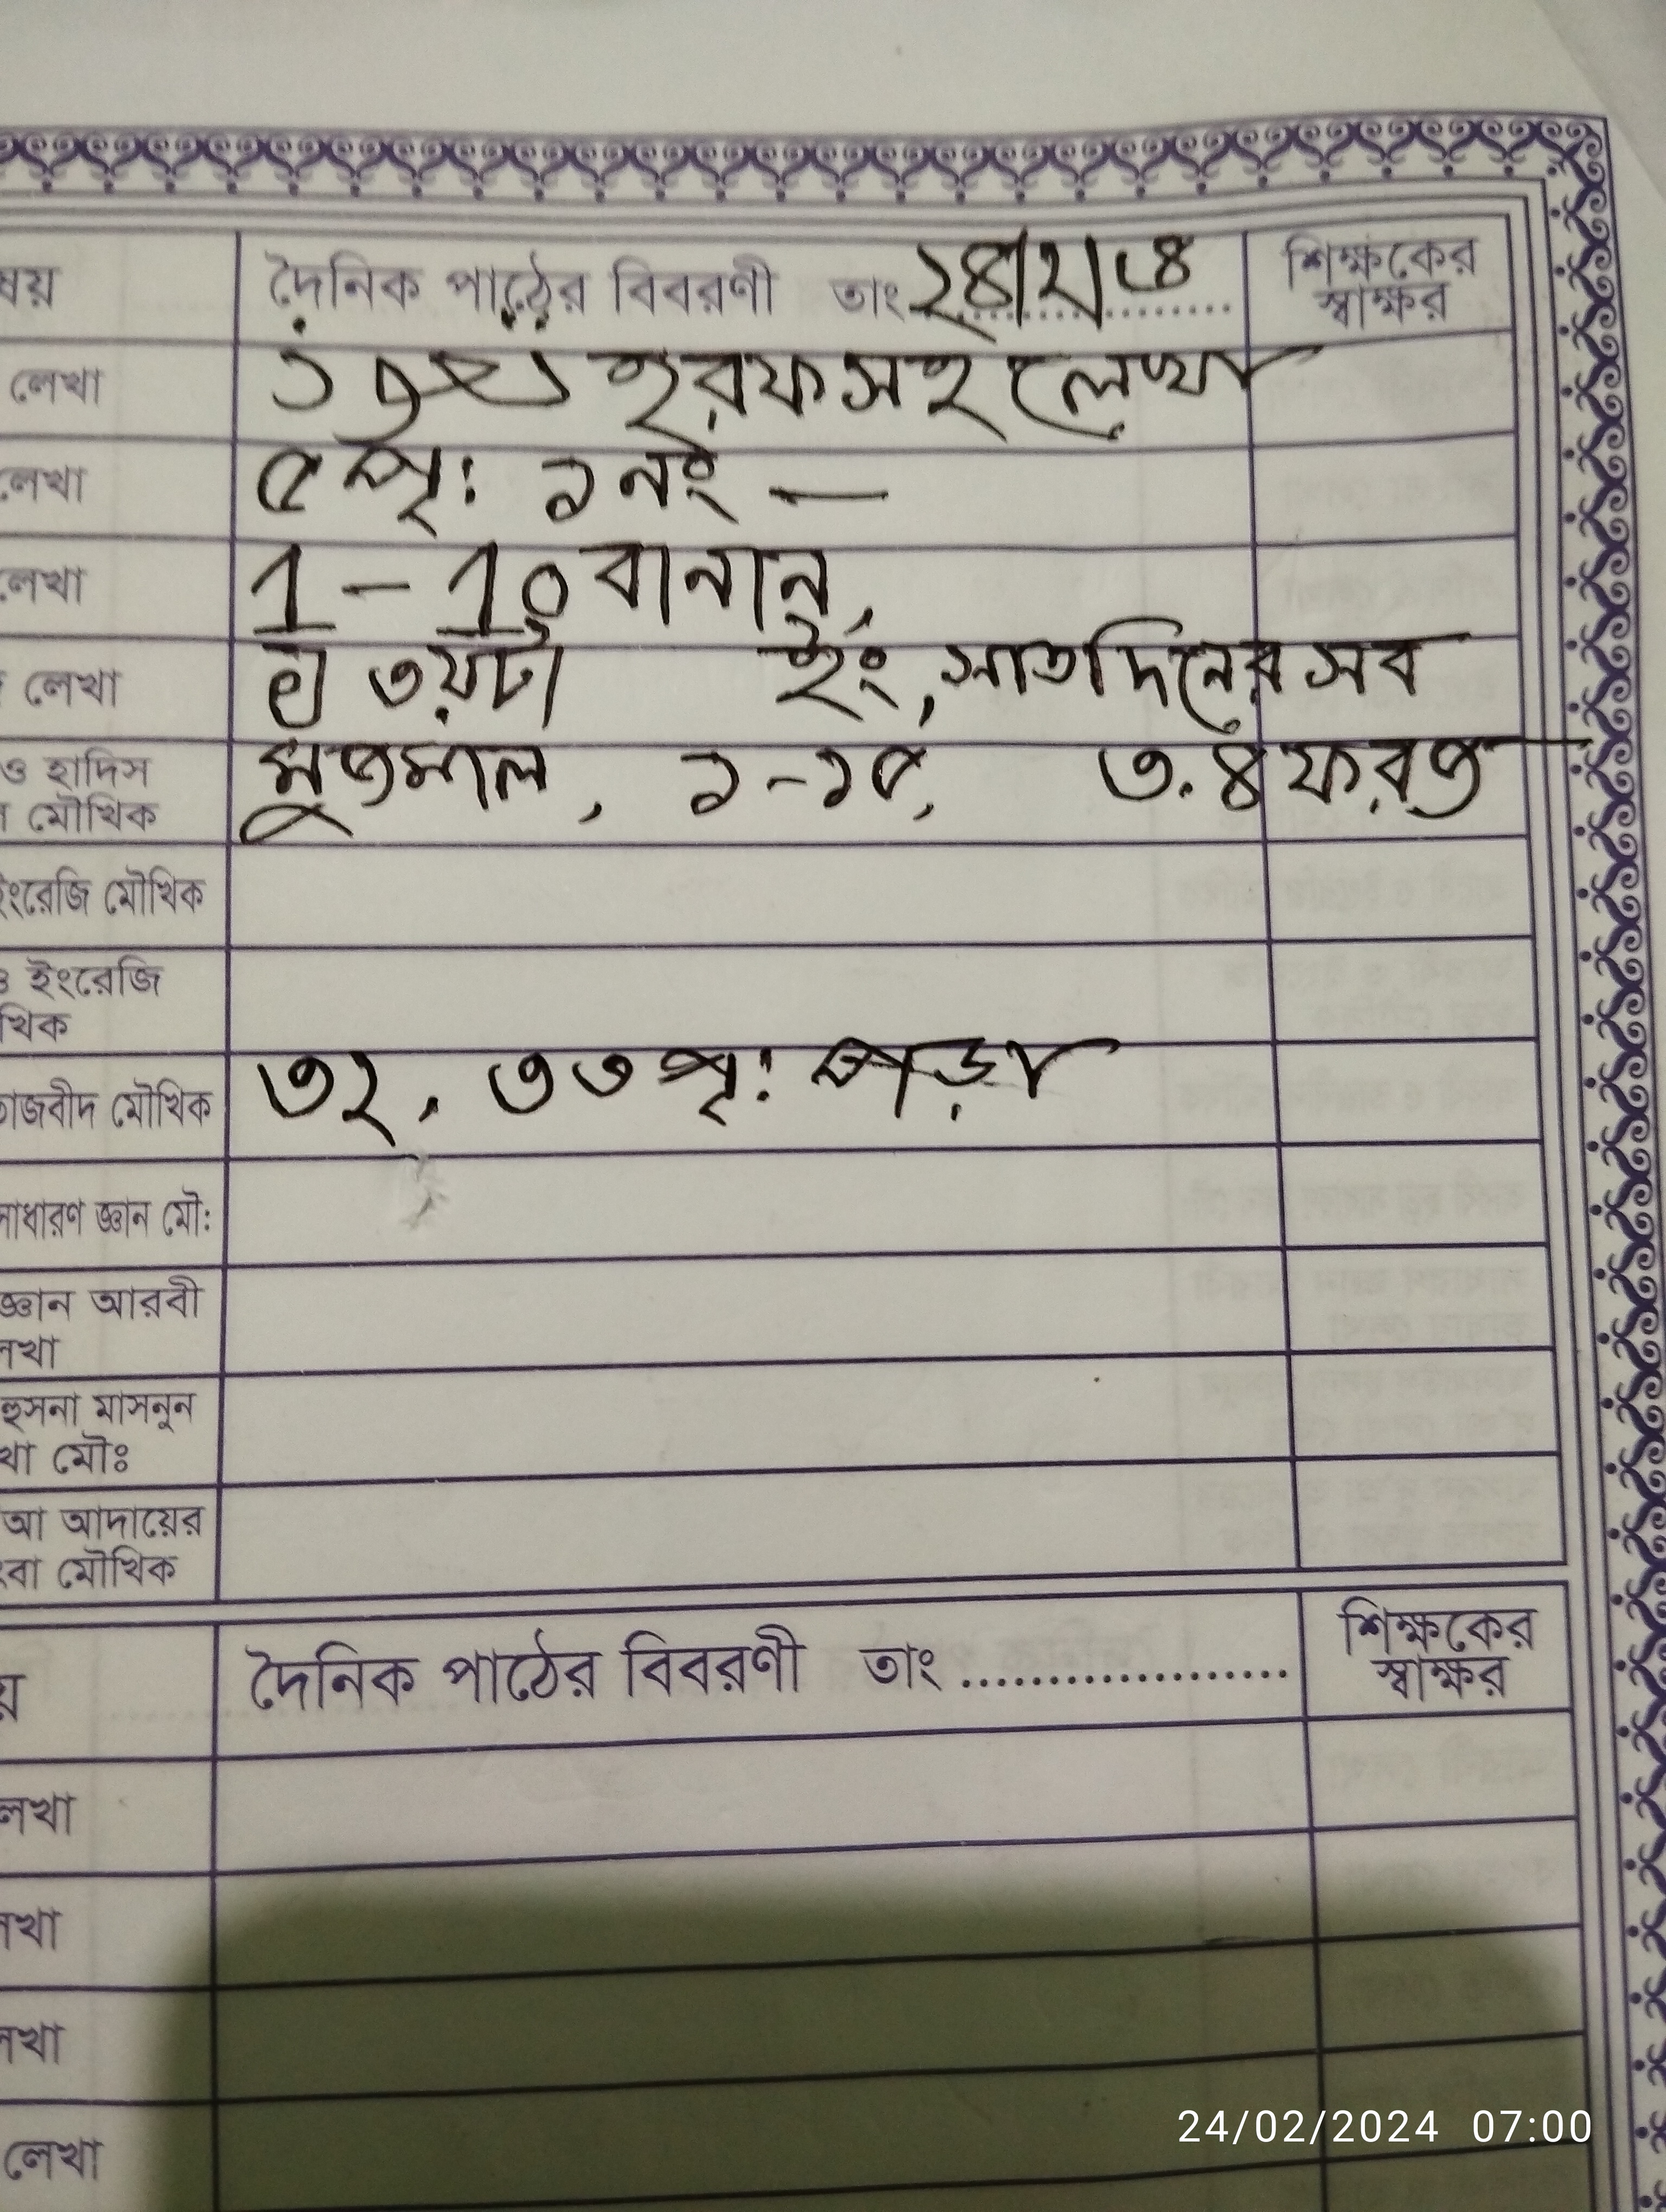 ষয় দৈনিক পাঠের বিবরণী তাং ২৪/২/ শিক্ষকের
স্বাক্ষর
লেখা হরফ সহ লেখা
লেখা ৫ পৃ: ১ নং —
লেখা 1 - 10 বানান,
লেখা ইং, সাতদিনের সব
ও হাদিস
মৌখিক ১-১৫, ৩.৪ ফরজ
ইংরেজি মৌখিক
ও ইংরেজি
খিক
তাজবীদ মৌখিক ৩২, ৩৩ পৃ: পড়া
সাধারণ জ্ঞান মৌ:
জ্ঞান আরবী
লেখা
হুসনা মাসনুন
খা মৌঃ
আ আদায়ের
ংবা মৌখিক
য় দৈনিক পাঠের বিবরণী তাং .................... শিক্ষকের
স্বাক্ষর
লেখা
লেখা
লেখা
লেখা
24/02/2024 07:00